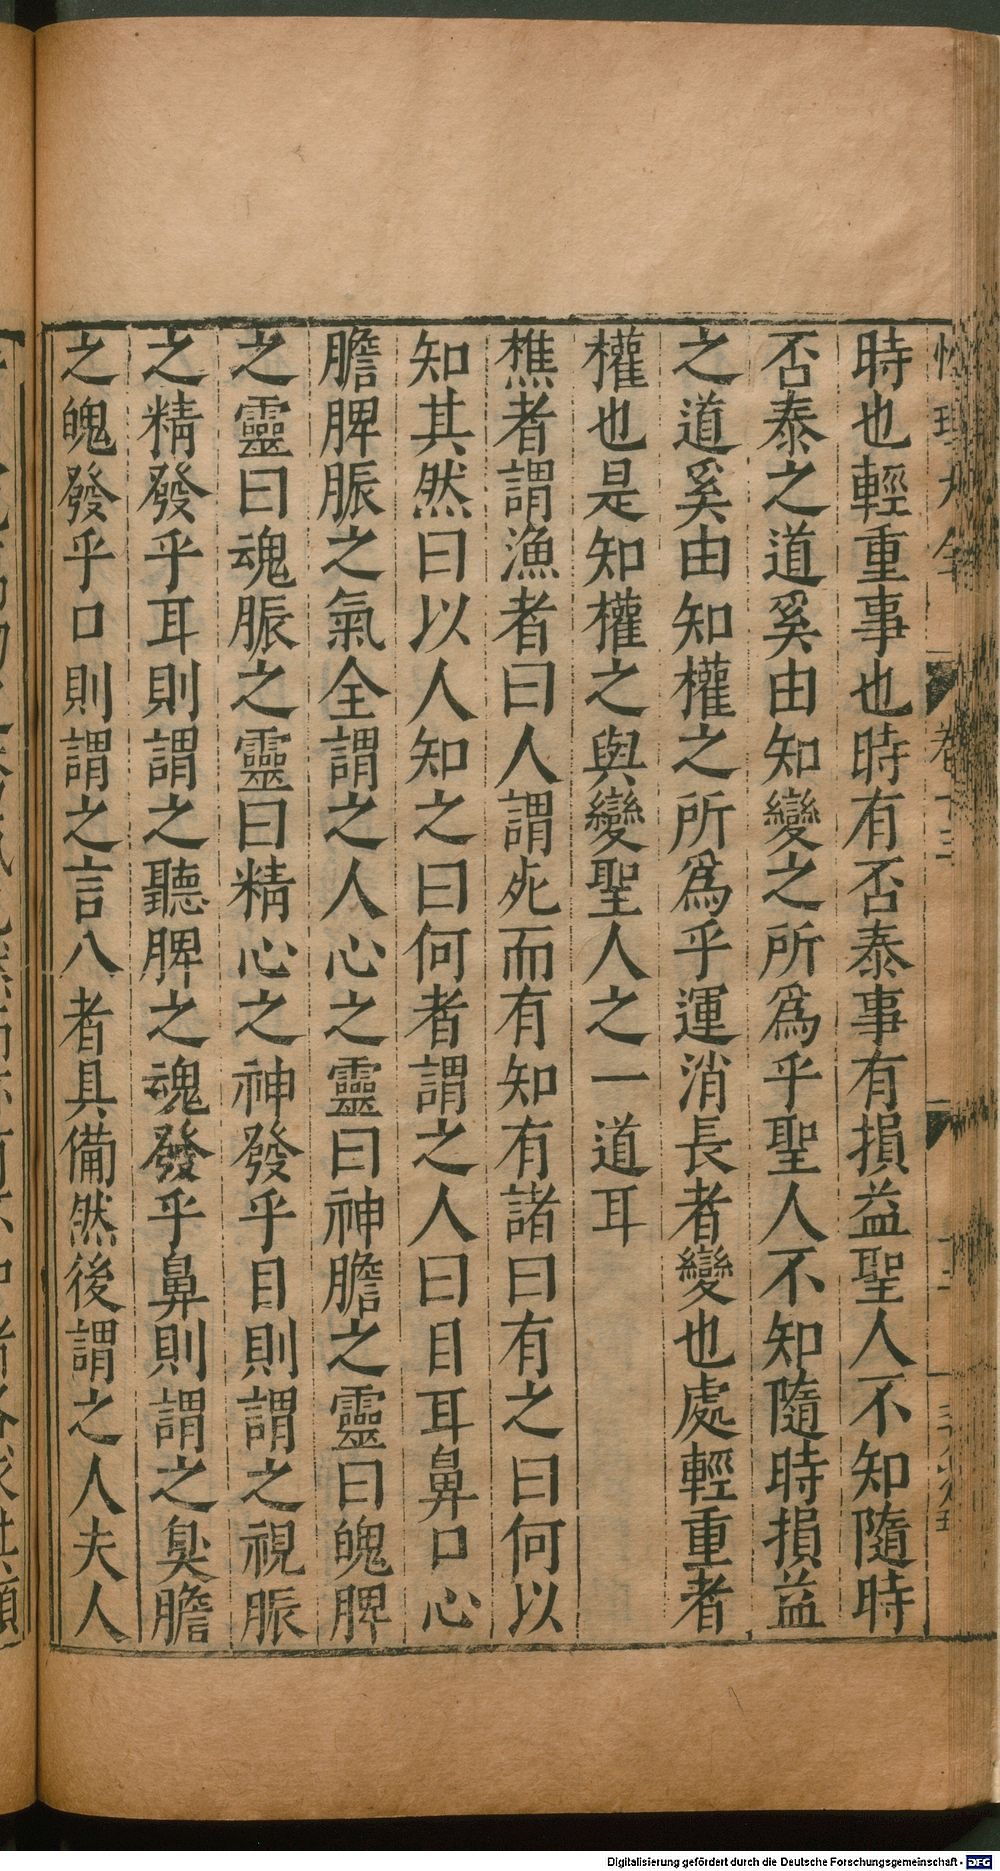 時也輕重事也時有否泰事有損益聖人不知隨時
否泰之道奚由知變之所爲乎聖人不知隨時損益
之道奚由知權之所爲乎運消長者變也處輕重者
權也是知權之與變聖人之一道耳
樵者謂漁者曰人謂死而有知有諸曰有之曰何以
知其然曰以人知之曰何者謂之人曰目耳鼻口心
膽脾脤之氣全謂之人心之靈曰神膽之靈曰魄脾
之靈曰魂脤之靈曰精心之神發乎目則謂之視脤
之精發乎耳則謂之聽脾之魂發乎鼻則謂之臭膽
之魄發乎口則謂之言八者具備然後謂之人夫人
Digitalisierung gefördert durch die Deutsche Forschungsgemeinschaft - DFG